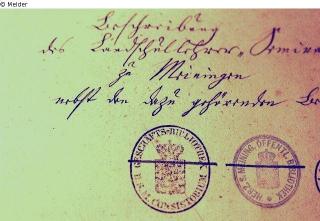 © Melder
Beschreibung
des Landschullehrer-Semina
zu Meiningen
nebst den dazu gehörenden Be
GESCHÄFTS-BIBLIOTHEK
H. S. M. CONSISTORIUM
HERZ. S. MEINING. ÖFFENTL. BIBLIOTHEK